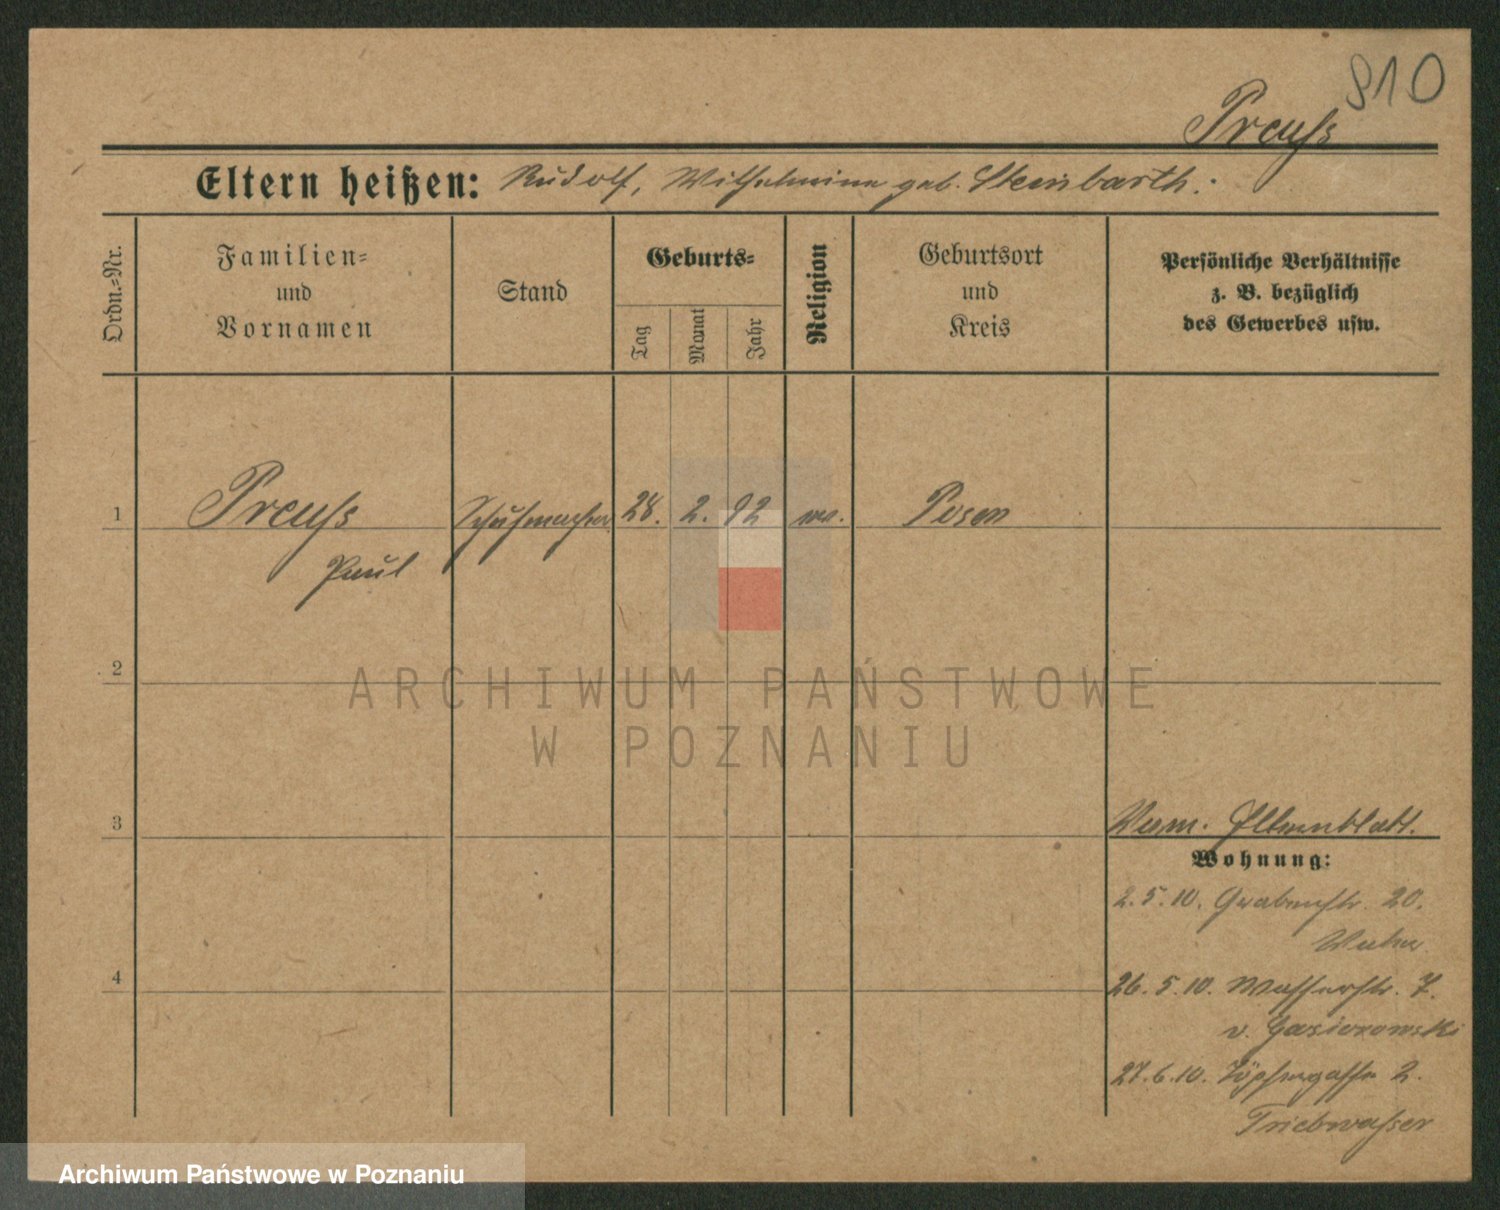 910
Preuſs
Eltern heißen: Rudolf, Wilhelmine geb. Steinbarth.
Ordn.=Nr.
Familien=
und
Vornamen
Stand
Geburts=
Tag
Monat
Jahr
Religion
Geburtsort
und
Kreis
Persönliche Verhältnisse
z. B. bezüglich
des Gewerbes usw.
1 Preuſs Schuhmacher 28. 2. 92 ev. Posen
Paul
2
3
4
Elternblatt.
Wohnung:
2. 5. 10. Grabenstr. 20.
26. 5. 10. Wasserstr. 7.
v. Gasiorowski
27. 6. 10. Töpfergasse 2.
Triebwaſser
ARCHIWUM PAŃSTWOWE
W POZNANIU
Archiwum Państwowe w Poznaniu